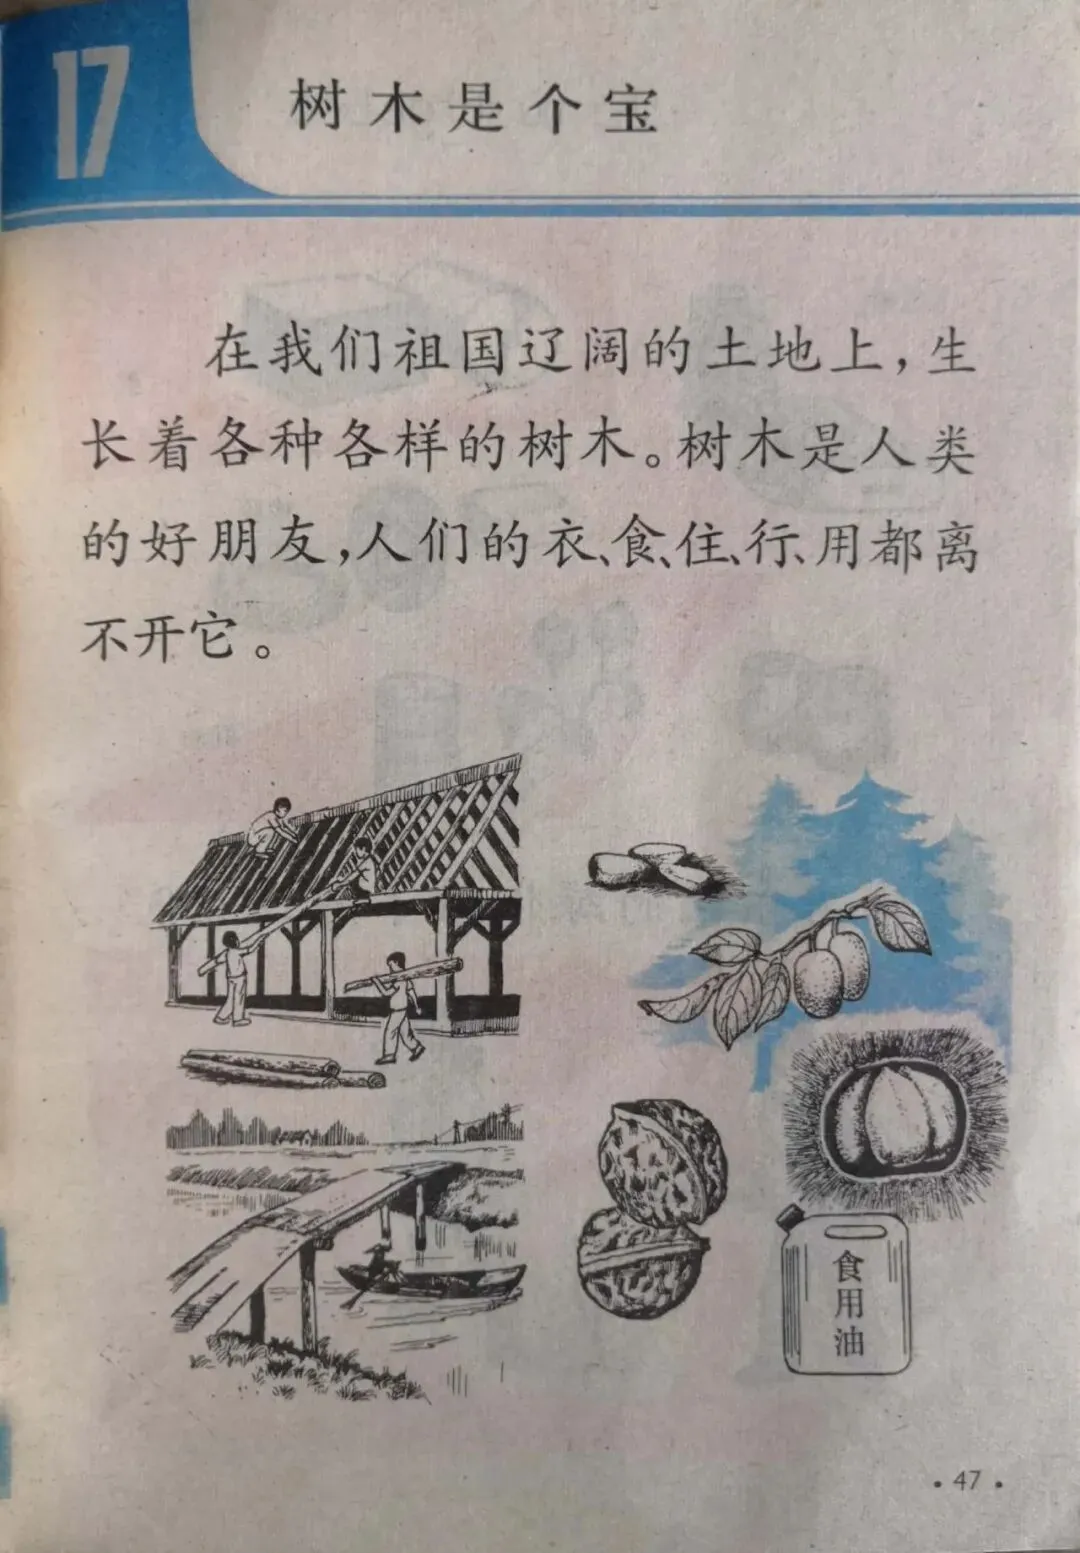 17
树木是个宝
在我们祖国辽阔的土地上，生
长着各种各样的树木。树木是人类
的好朋友，人们的衣、食、住、行、用都离
不开它。
食用油
·47·